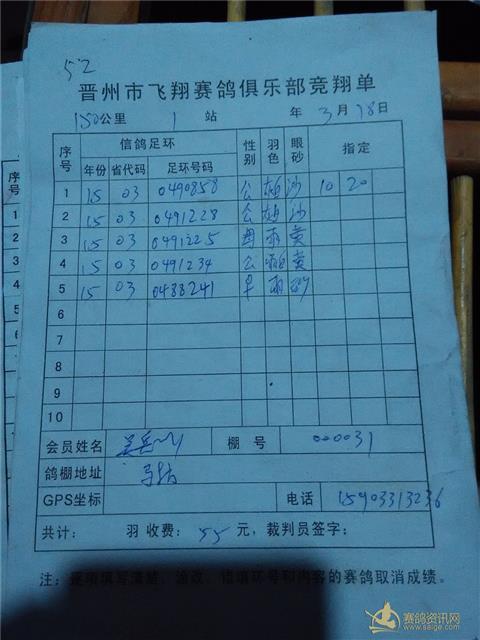 52
晋州市飞翔赛鸽俱乐部竞翔单
150公里 1 站 年 3 月 18日
序号 信鸽足环 性别 羽色 眼砂 指定
年份 省代码 足环号码
1 15 03 0490858 公 沙 10 20
2 15 03 0491228 公 沙
3 15 03 0491225 雨 黄
4 15 03 0491234 公 黄
5 15 03 0488241 雨 砂
6
7
8
9
10
会员姓名 棚号 000031
鸽棚地址
GPS坐标 电话 15903313236
共计: 羽 收费: 55 元，裁判员签字:
注: 逐项填写清楚、涂改、错填环号和内容的赛鸽取消成绩。
序号
1
2
3
4
5
6
7
8
9
赛鸽资讯网
www.saige.com